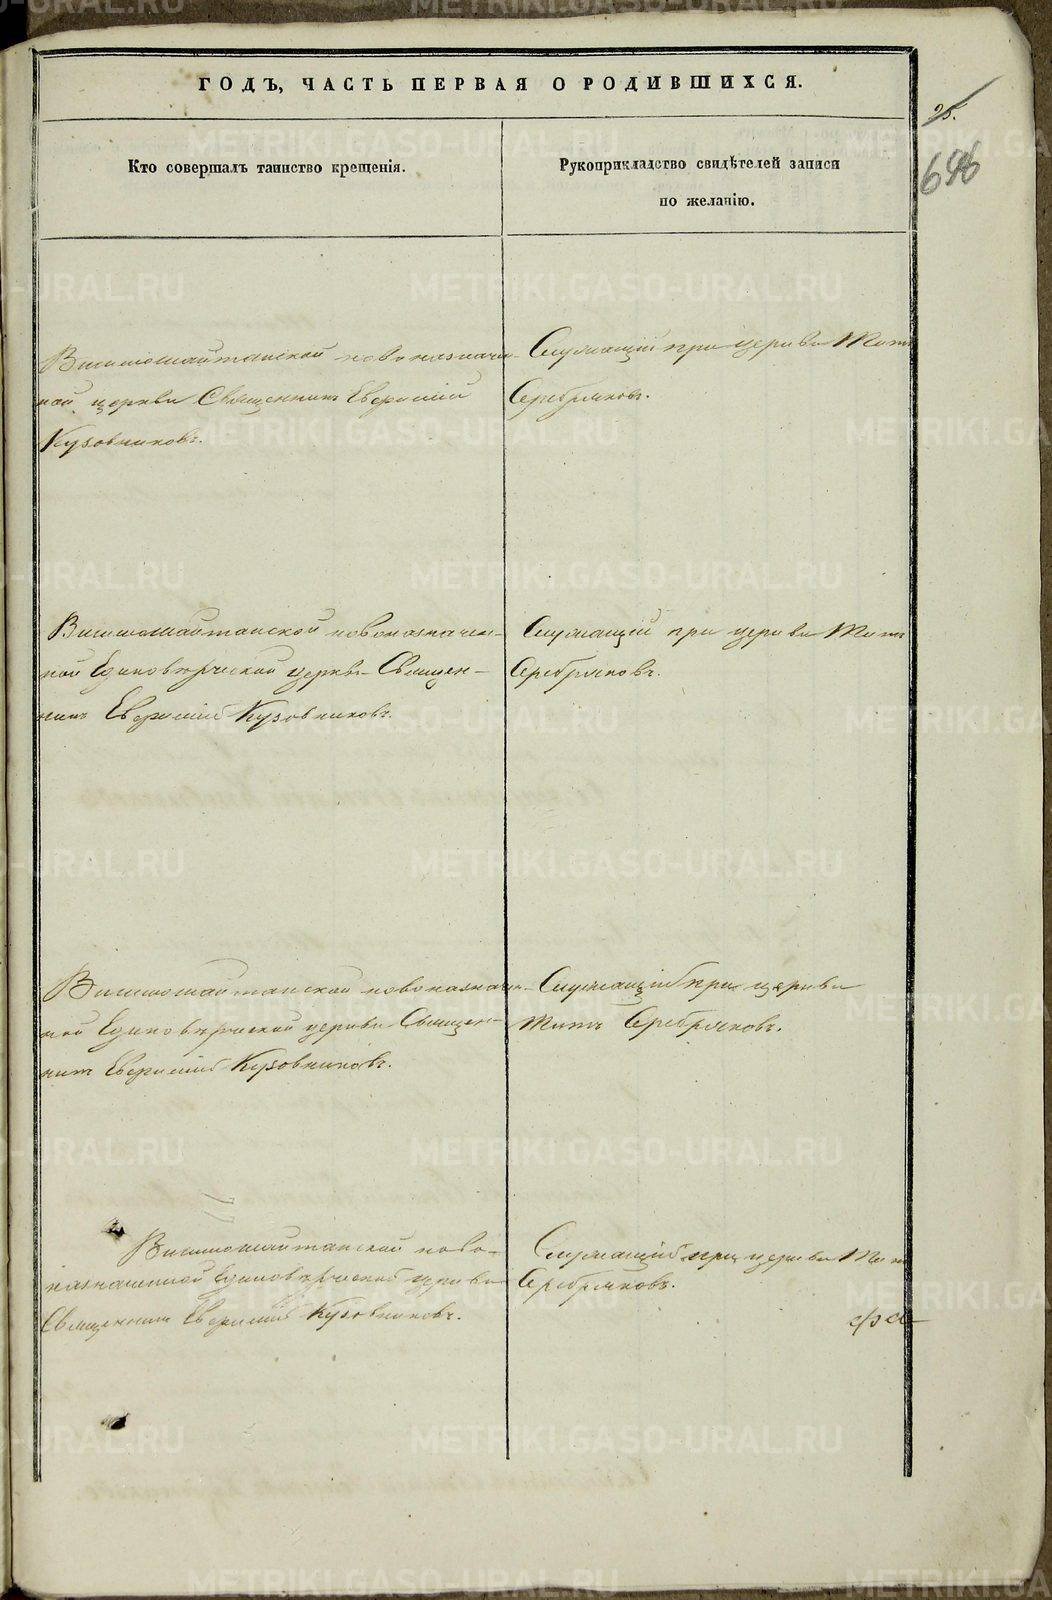 ГОДЪ, ЧАСТЬ ПЕРВАЯ О РОДИВШИХСЯ.
25.
696
Кто совершалъ таинство крещенія.
Рукоприкладство свидѣтелей записи
по желанію.
Висимошайтанской новоназначен-
ной церкви Священникъ
Кузовниковъ.
Служащій при церкви Титъ
Серебряковъ.
Висимошайтанской новоназначен-
ной Единовѣрческой церкви Священ-
никъ Кузовниковъ.
Служащій при церкви Титъ
Серебряковъ.
Висимошайтанской новоназначен-
ной Единовѣрческой церкви Священ-
никъ Кузовниковъ.
Служащій при церкви
Титъ Серебряковъ.
Висимошайтанской ново-
назначенной Единовѣрческой церкви
Священникъ Кузовниковъ.
Служащій при церкви Титъ
Серебряковъ.
METRIKI.GASO-URAL.RU